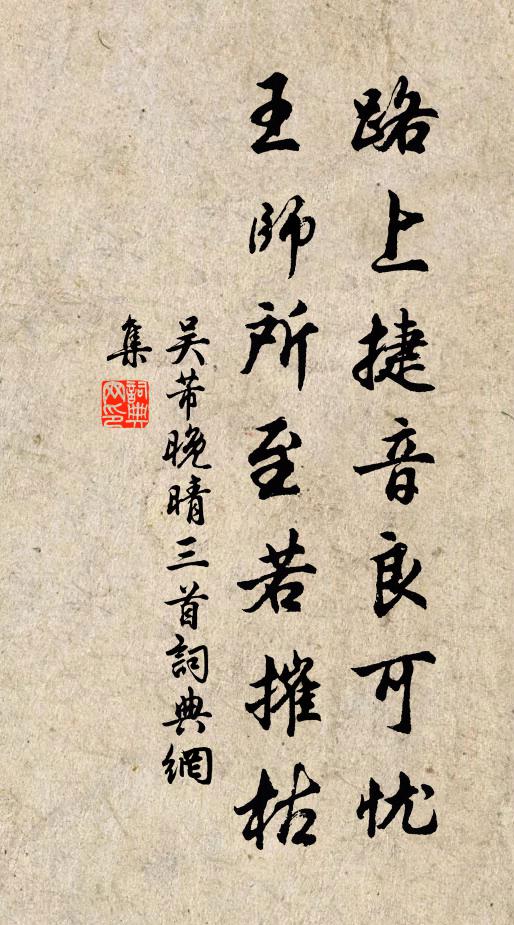 路上捷音良可忧
王師所至若摧枯
吴芾晚晴三首詞典網
集
詞典网印